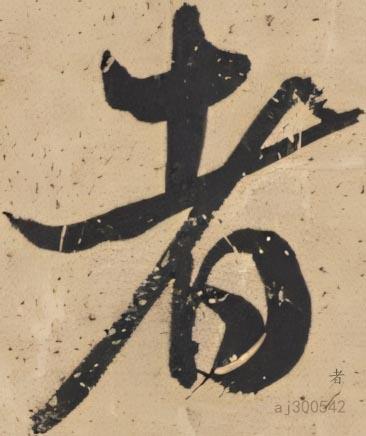 者
者
aj300542